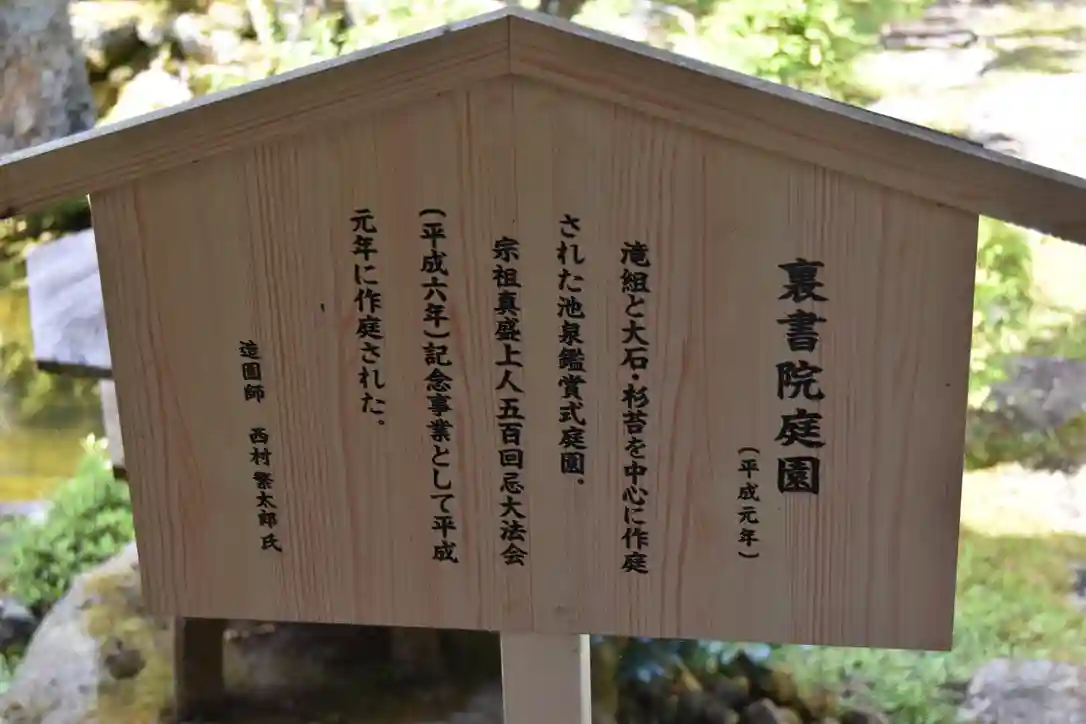 裏書院庭園
(平成元年)
滝組と大石・杉苔を中心に作庭
された池泉鑑賞式庭園。
宗祖真盛上人五百回忌大法会
(平成六年)記念事業として平成
元年に作庭された。
造園師 西村繁太郎氏